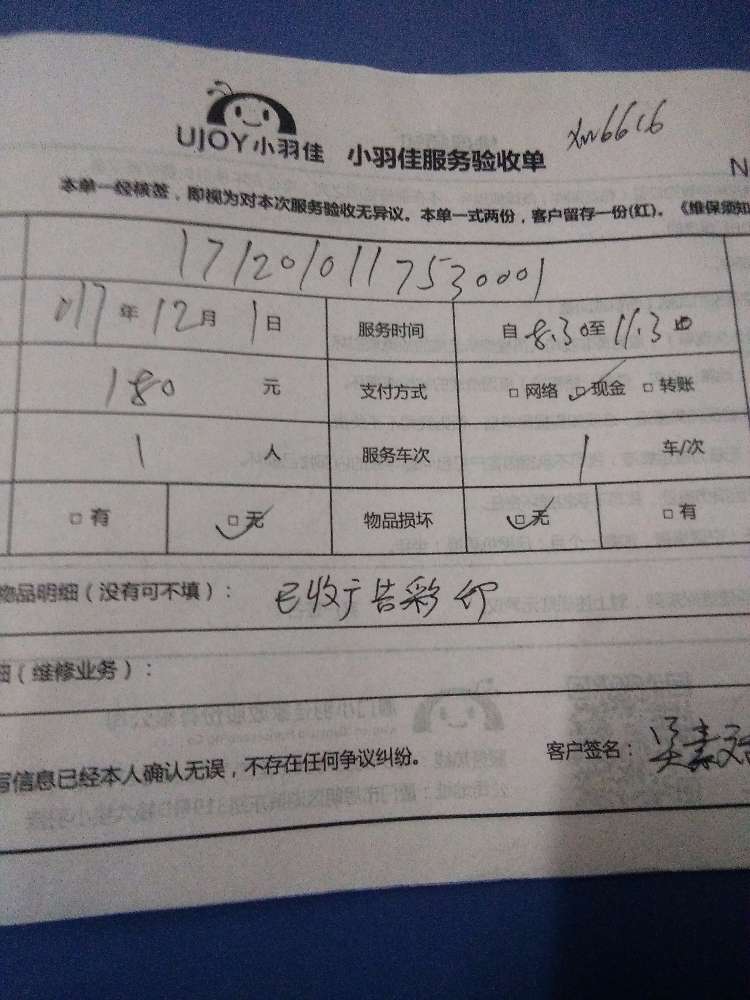 UJOY小羽佳 小羽佳服务验收单 xw6616
N
本单一经核签，即视为对本次服务验收无异议。本单一式两份，客户留存一份(红)。《维保须知
1712010117530001
017年12月1日 服务时间 自8.30至11.30
180元 支付方式 □网络 □现金 □转账
1人 服务车次 1车/次
□有 □无 物品损坏 □无 □有
物品明细（没有可不填）： 已收广告彩印
细（维修业务）：
写信息已经本人确认无误，不存在任何争议纠纷。 客户签名：吴素